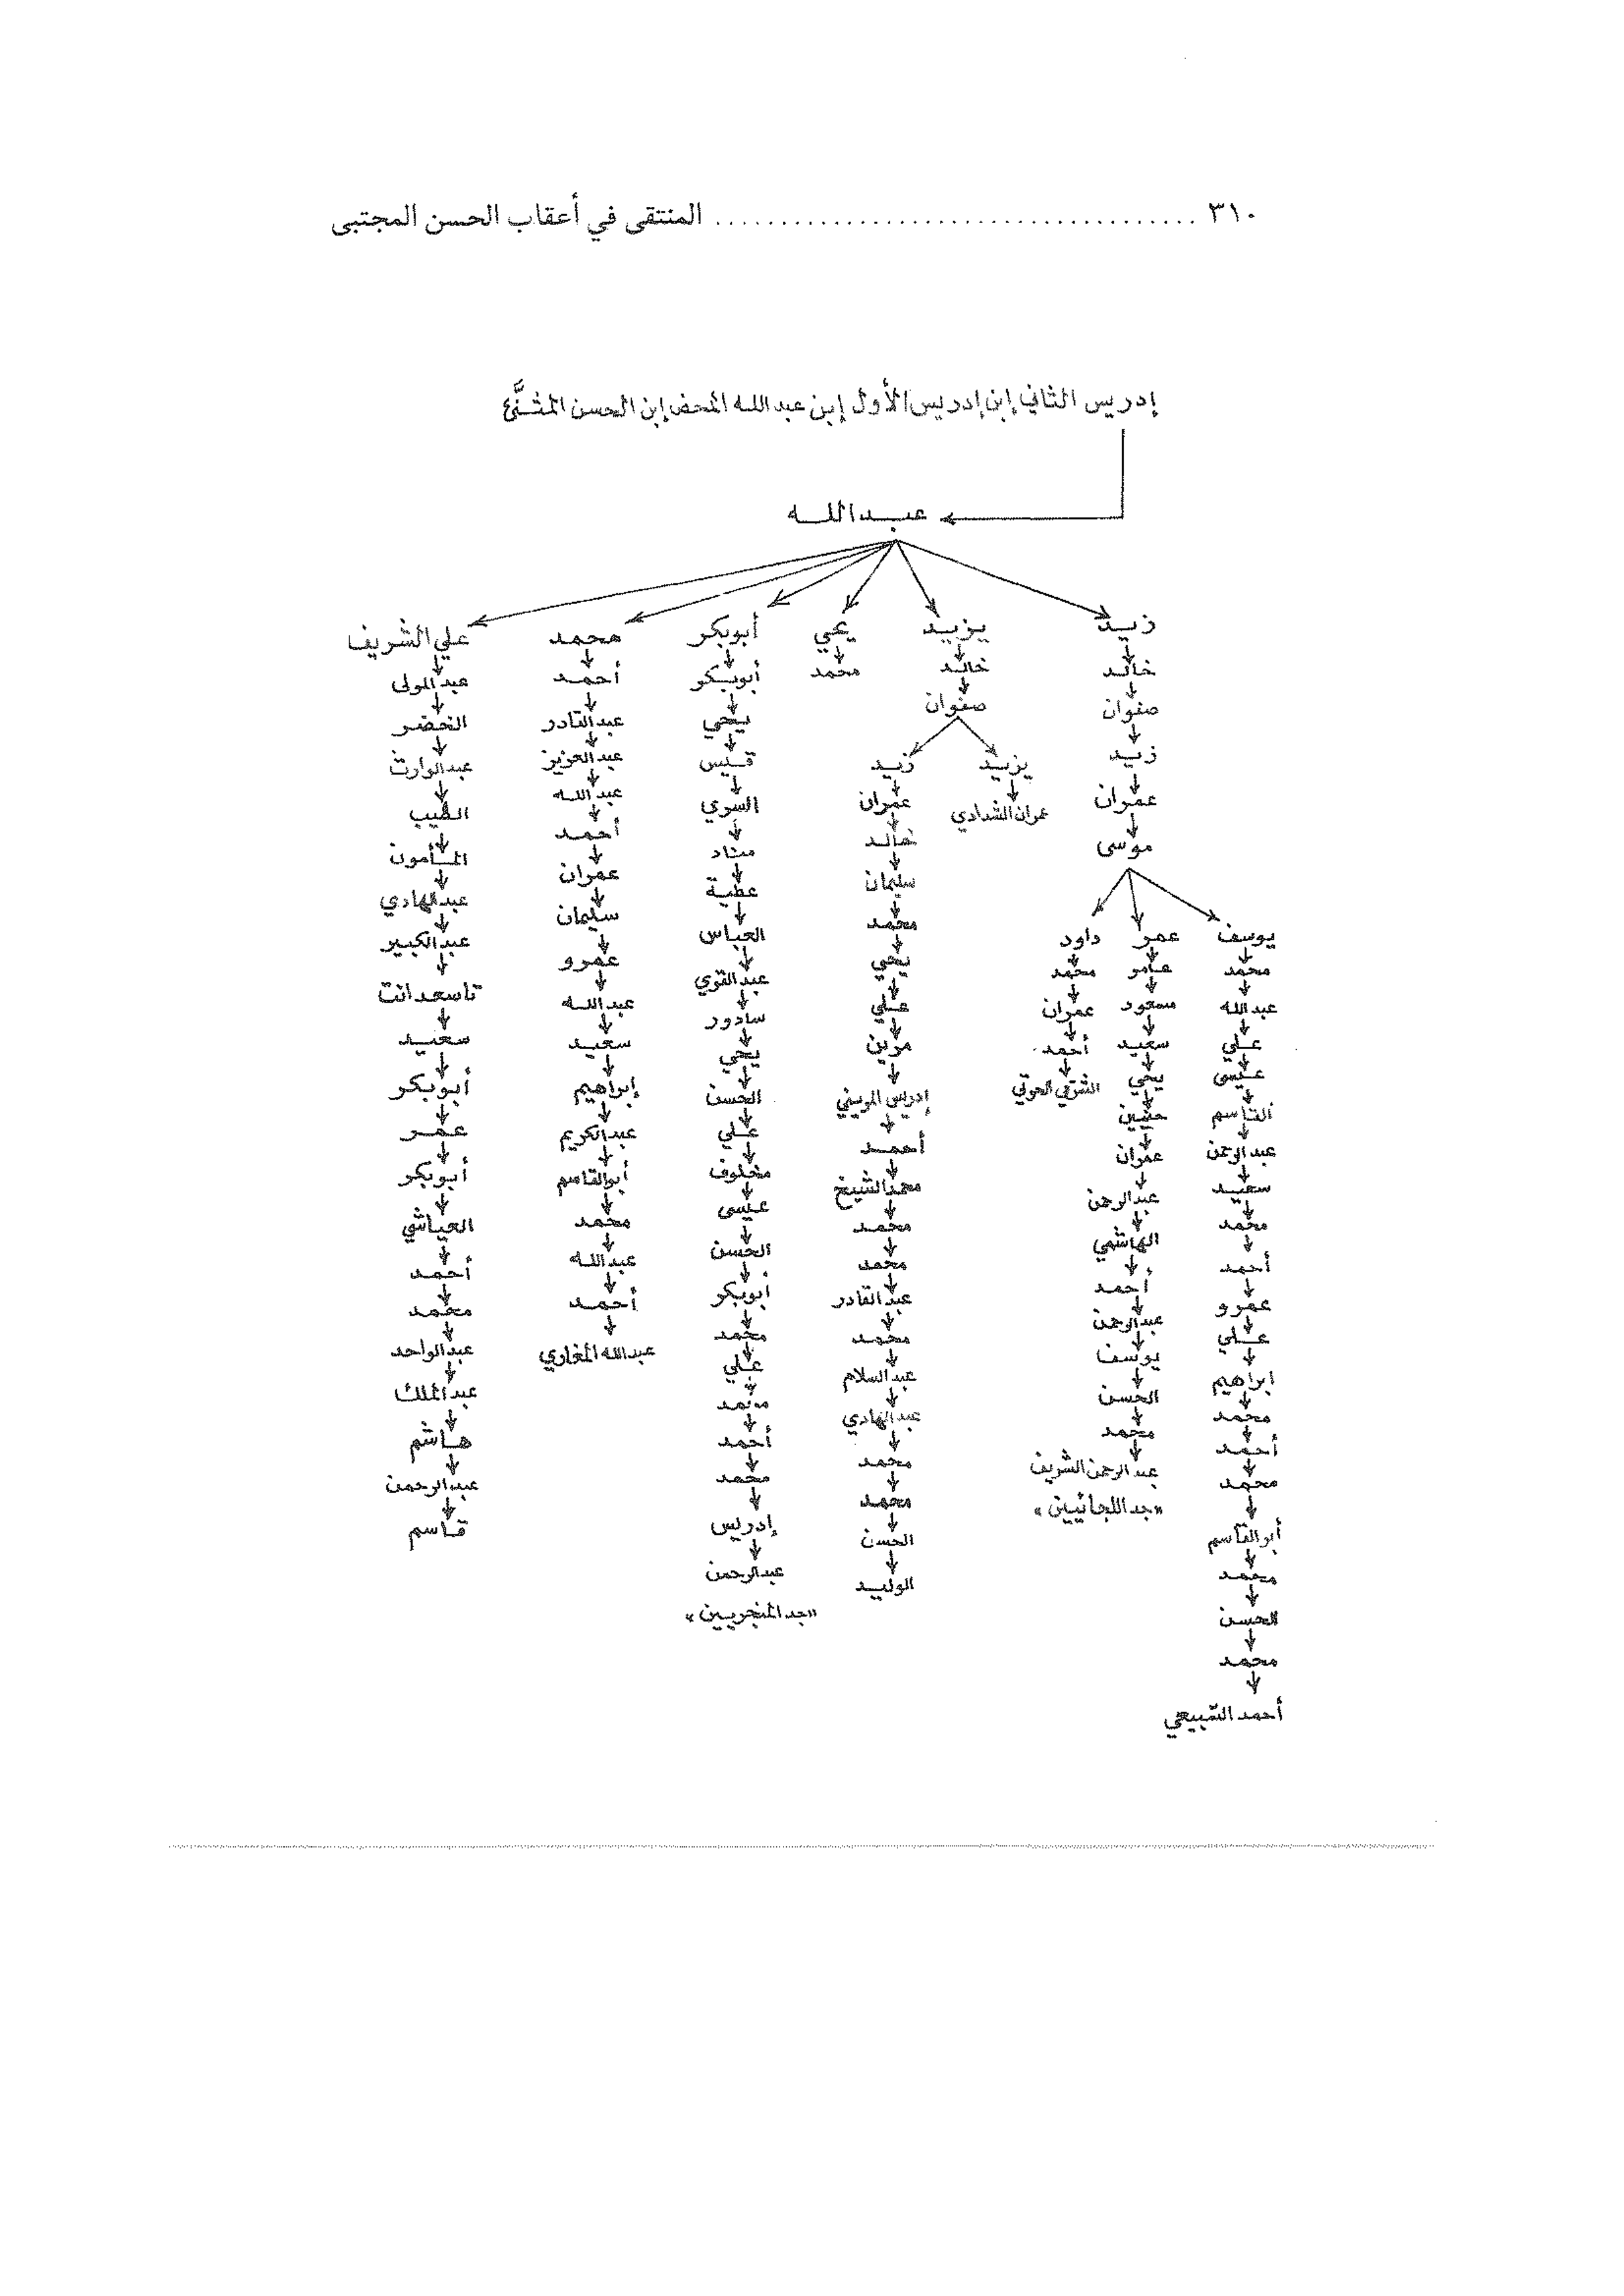 ٣١٠ .................................... المنتقى في أعقاب الحسن المجتبى
إدريس الثاني إبن إدريس الأول إبن عبد الله المحض إبن الحسن المثنَّى
عبد الله
زيد
خالد
صفوان
زيد
عمران
موسى
يوسف
محمد
عبد الله
علي
عيسى
القاسم
عبد الرحمن
سعيد
محمد
أحمد
عمرو
علي
ابراهيم
محمد
أحمد
محمد
أبو القاسم
محمد
الحسن
محمد
أحمد السّبيعي
عمر
عامر
مسعود
سعيد
يحي
حنين
عمران
عبد الرحمن
الهاشمي
أحمد
عبد الرحمن
يوسف
الحسن
محمد
عبد الرحمن الشريف
«جد اللجائيين»
داود
محمد
عمران
أحمد
الشرقي
يزيد
خالد
صفوان
يزيد
عمران الشدادي
زيد
عمران
خالد
سليمان
محمد
يحي
علي
مرين
إدريس المريني
أحمد
محمد الشيخ
محمد
محمد
عبد القادر
محمد
عبد السلام
عبد الهادي
محمد
محمد
الحسن
الوليد
يحي
محمد
أبو بكر
أبو بكر
يحي
قيس
السري
مناد
عطية
العباس
عبد القوي
سادور
يحي
الحسن
علي
مخلوف
عيسى
الحسن
أبو بكر
محمد
علي
محمد
أحمد
محمد
إدريس
عبد الرحمن
«جد المنجريين»
محمد
أحمد
عبد القادر
عبد العزيز
عبد الله
أحمد
عمران
سليمان
عمرو
عبد الله
سعيد
إبراهيم
عبد الكريم
أبو القاسم
محمد
عبد الله
أحمد
عبد الله المغاري
علي الشريف
عبد المولى
الخضر
عبد الوارث
الطيب
المأمون
عبد الهادي
عبد الكبير
تاسعدانت
سعيد
أبو بكر
عمر
أبو بكر
العياشي
أحمد
محمد
عبد الواحد
عبد الملك
هاشم
عبد الرحمن
قاسم